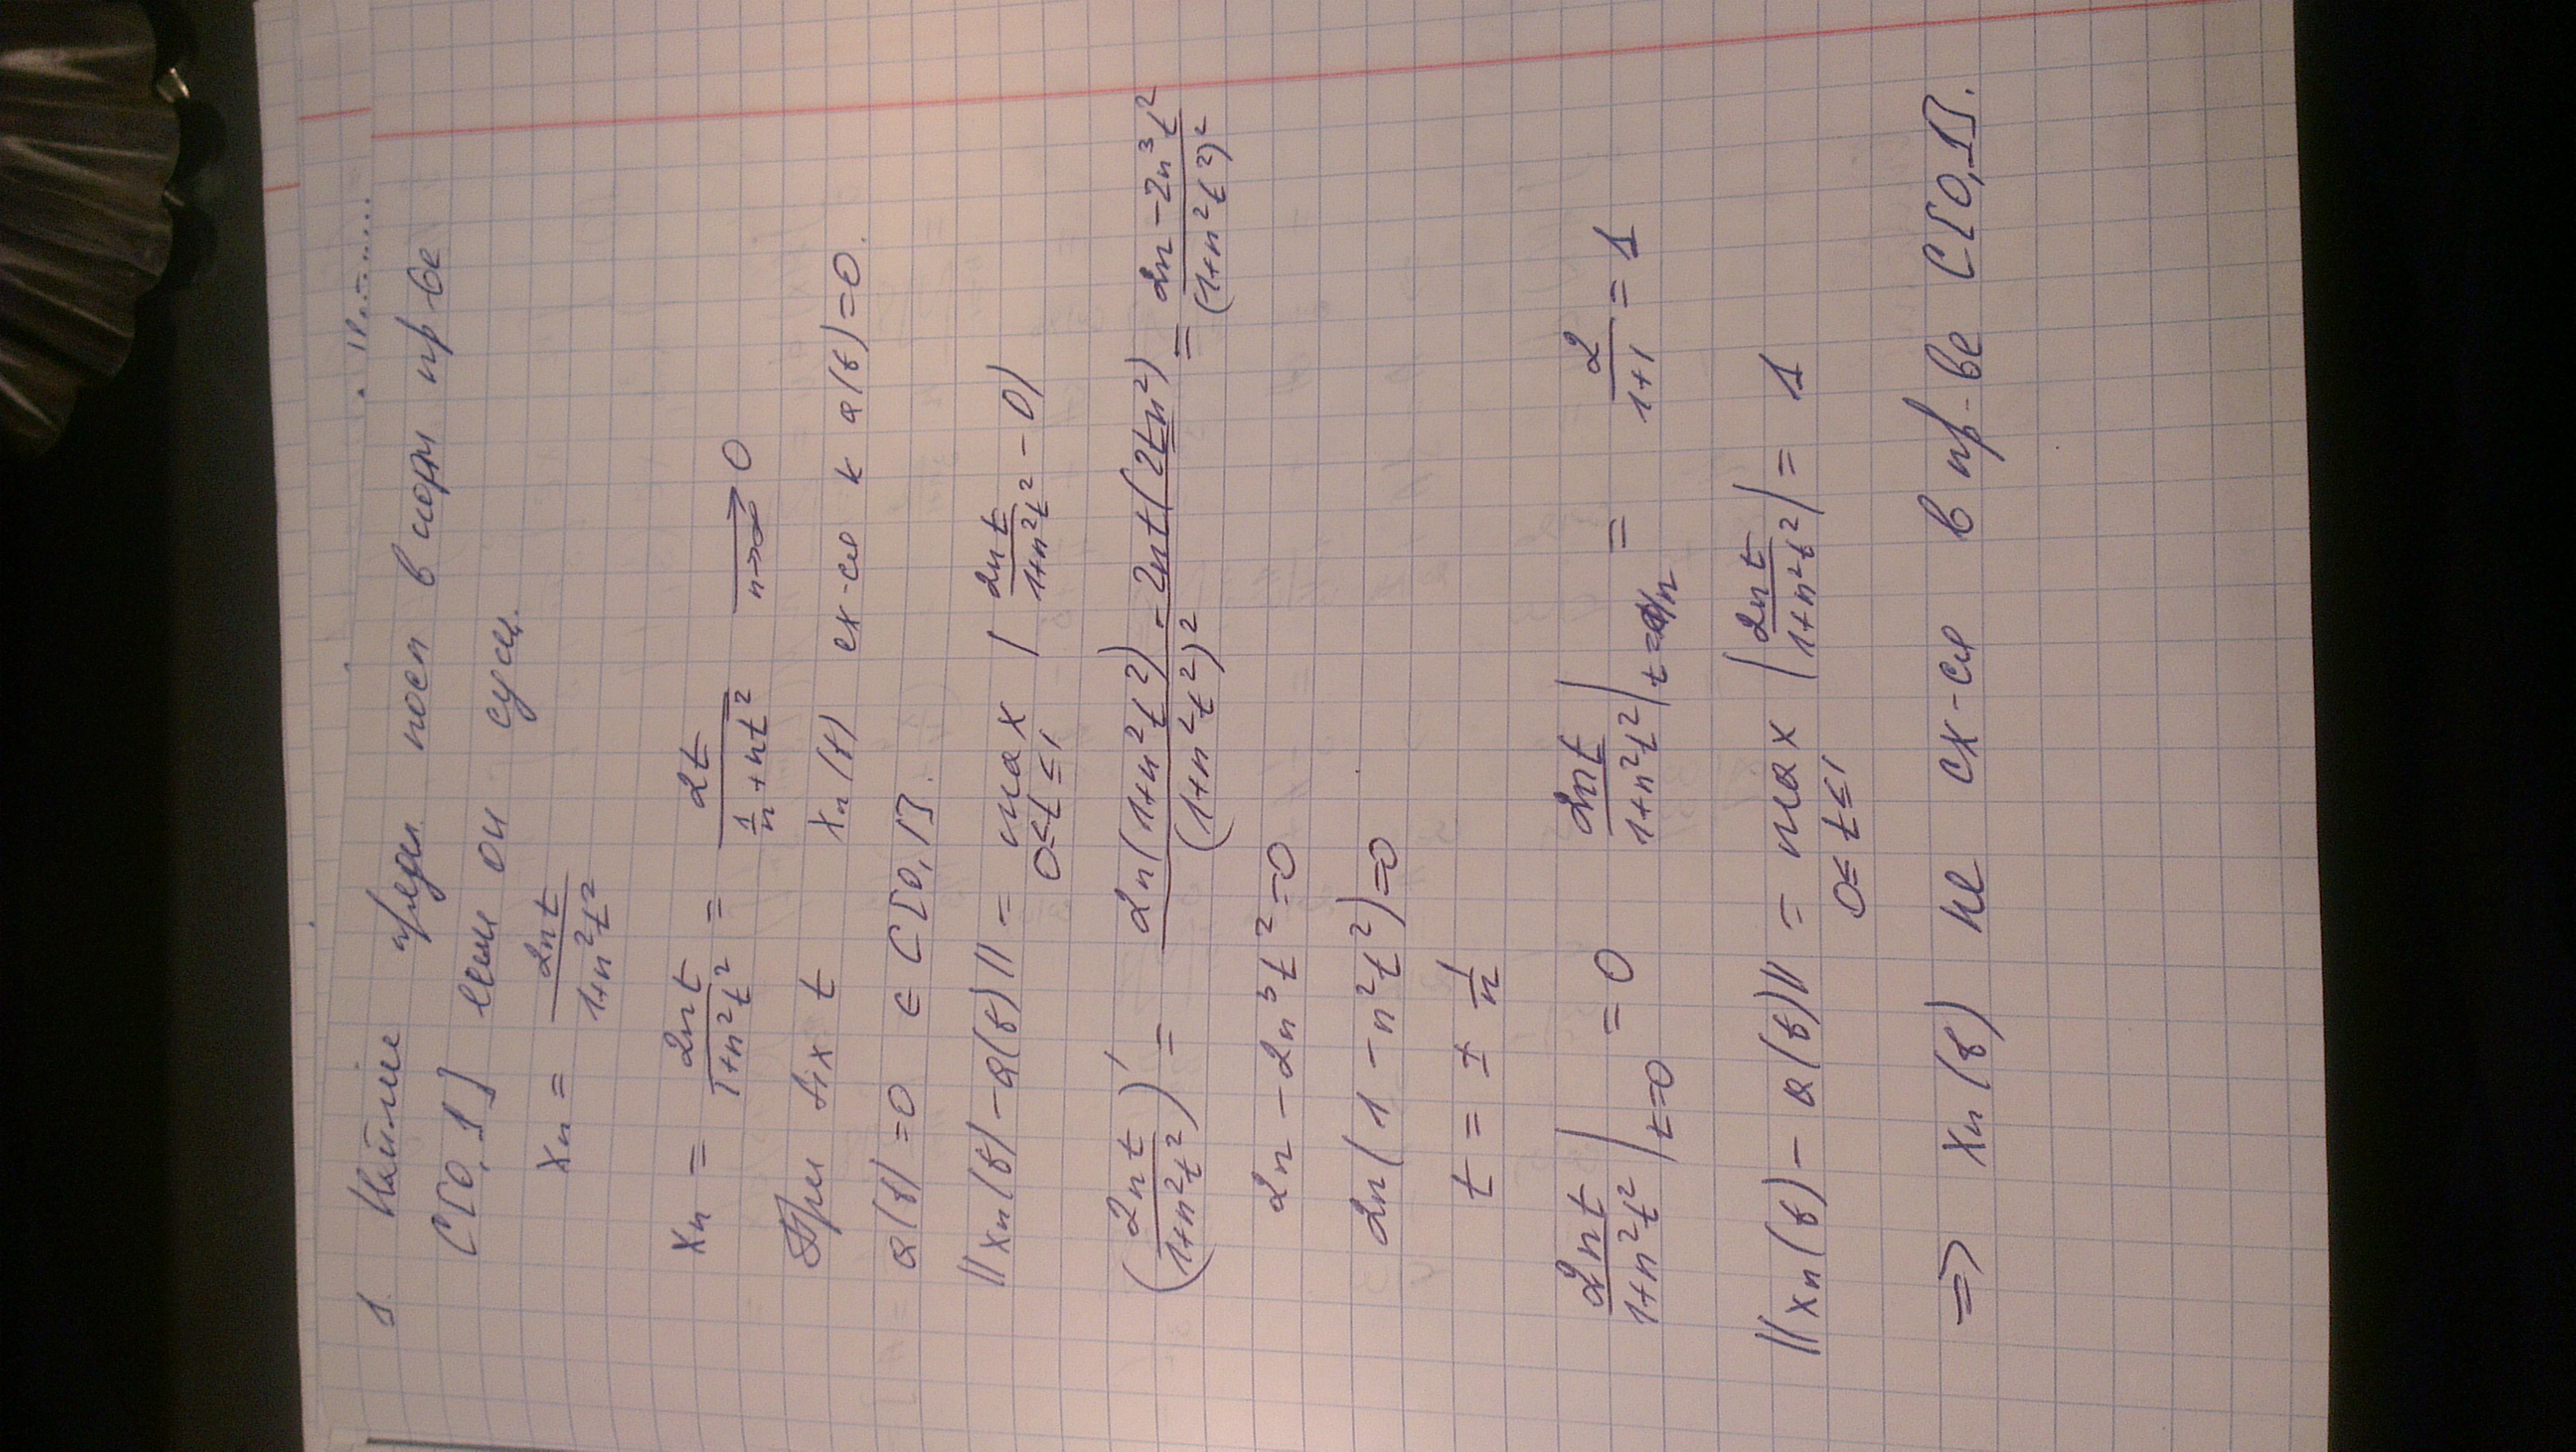 1. Найти пред. посл в норм пр ве
C[0,1] если он сущ.
xn = 2nt/(1+n²t²)
xn = 2nt/(1+n²t²) = 2t/(1/n + nt²) →(n→∞) 0
При fix t xn(t) сх-ся к a(t)=0.
a(t)=0 ∈ C[0,1].
||xn(t)-a(t)|| = max 0≤t≤1 |2nt/(1+n²t²) - 0|
(2nt/(1+n²t²))' = (2n(1+n²t²) - 2nt(2tn²))/(1+n²t²)² = (2n-2n³t²)/(1+n²t²)²
2n - 2n³t² = 0
2n(1-n²t²)=0
t = ± 1/n
2nt/(1+n²t²)|t=0 = 0 2nt/(1+n²t²)|t=1/n = 2/(1+1) = 1
||xn(t) - a(t)|| = max 0≤t≤1 |2nt/(1+n²t²)| = 1
=> xn(t) не сх-ся в пр-ве C[0,1].